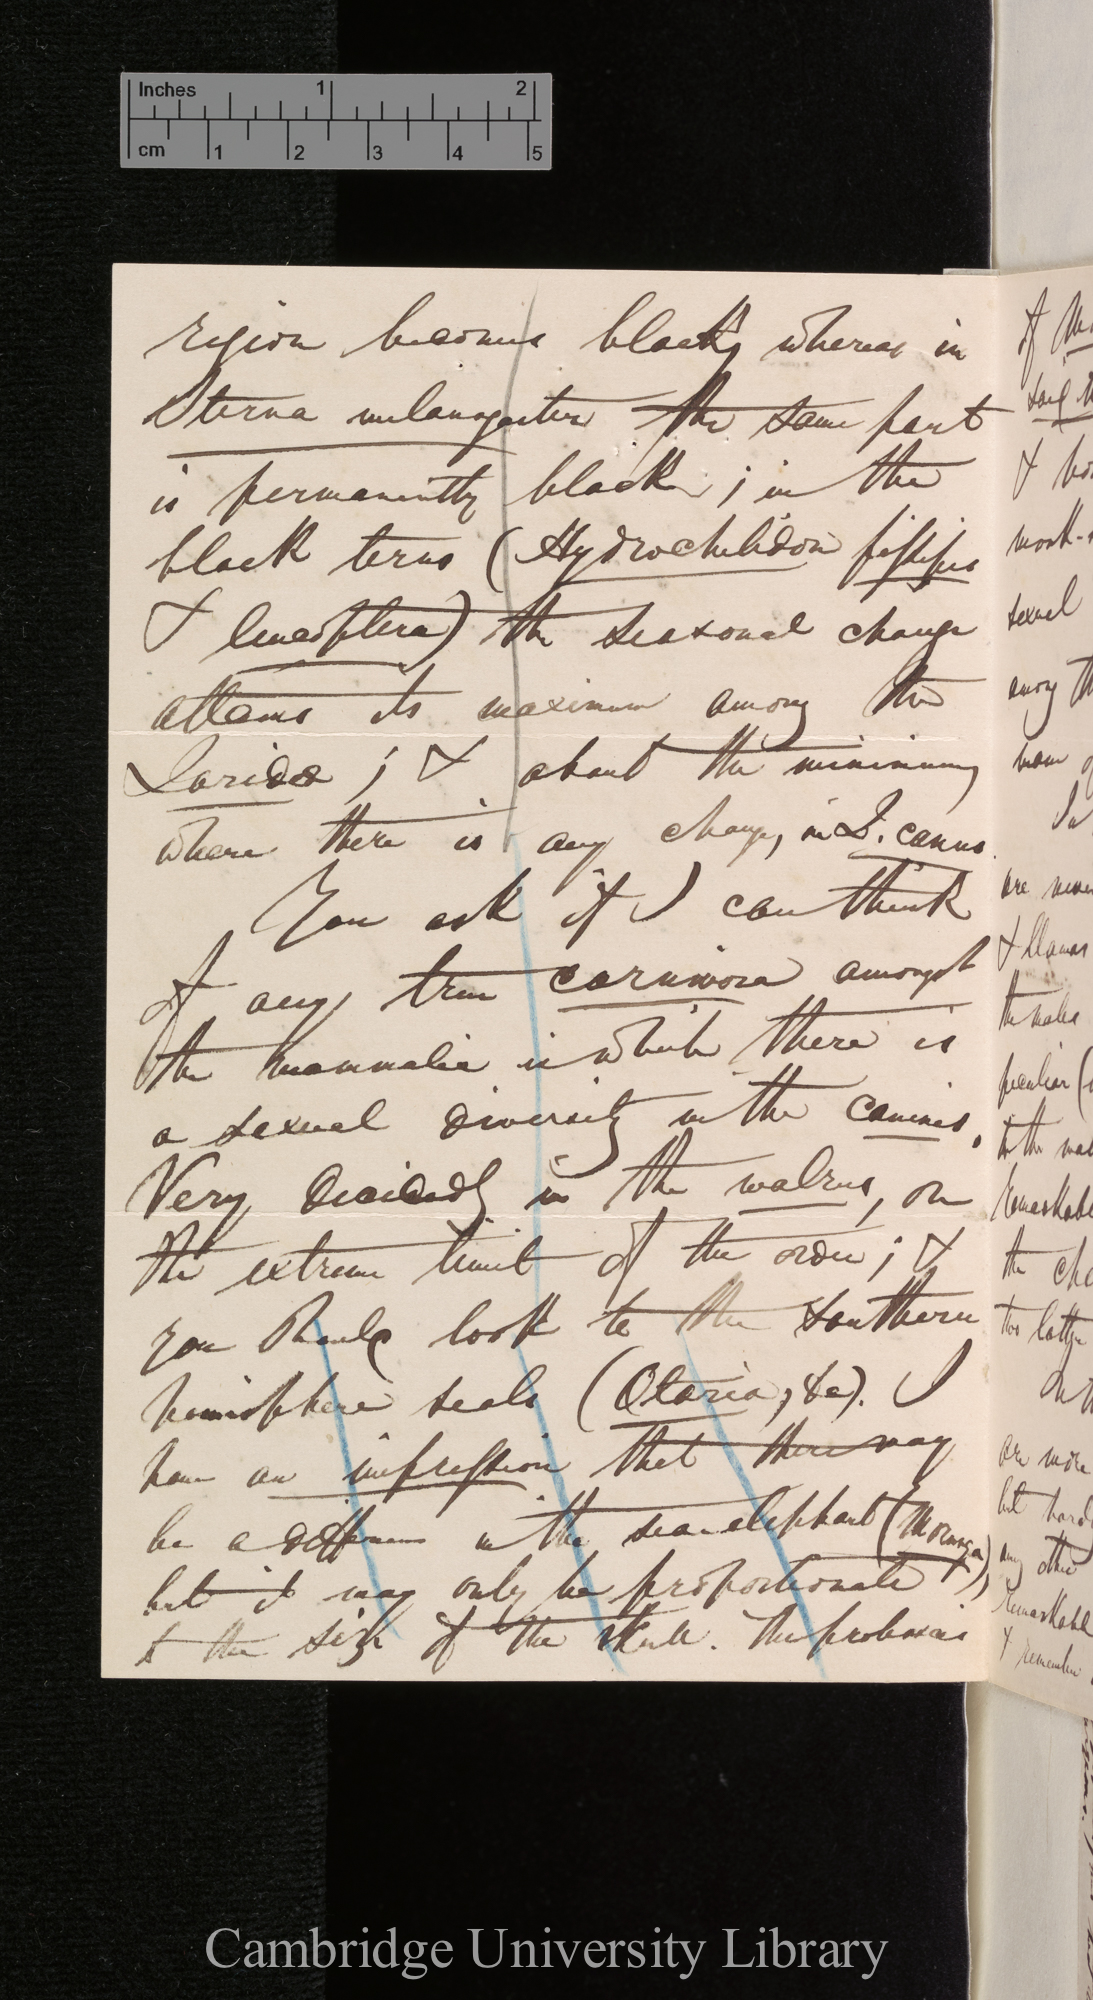 Inches 1 2
cm 1 2 3 4 5
region becomes black, whereas in
Sterna melanogaster the same part
is permanently black; in the
black terns (Hydrochelidon fissipes
& leucoptera) the seasonal change
attains its maximum among the
Laridæ; & about the minimum,
where there is any change, in L. canus.
You ask if I can think
of any true carnivora amongst
the mammalia in which there is
a sexual diversity in the canines.
Very decidedly in the walrus, on
the extreme limit of the order; &
you should look to the Southern
hemisphere seals (Otaria, &c). I
have an impression that there may
be a difference in the sea-elephant (Morunga),
but it may only be proportionate
to the size of the skull. The proboscis
of
& 
monk-
sexual
among th
In
are never
& llamas
the males
peculiar (
to the mal
remarkable
the
two latter
are more
but hardly
any other
remarkable
& remember
Cambridge University Library